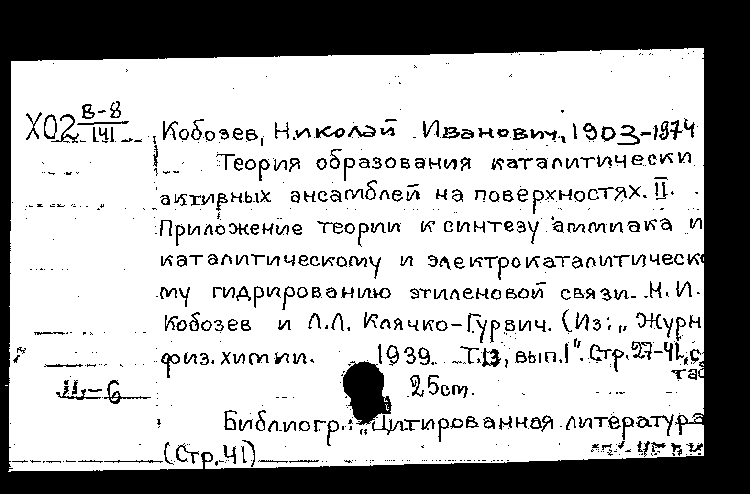 Х02 В-8/141
Кобозев, Николай Иванович, 1903-1974
Теория образования каталитически
активных ансамблей на поверхностях. II.
Приложение теории к синтезу аммиака и
каталитическому и электрокаталитическо
му гидрированию этиленовой связи. Н.И.
Кобозев и Л.Л. Клячко-Гурвич. (Из: „Журн
физ. химии. 1939. Т.13, вып.1". Стр. 27-41, с
таб
М-6
25 cm.
Библиогр.: „Цитированная литература
(Стр. 41)